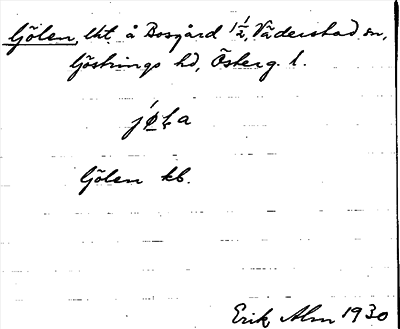 Gjölen, lht. å Bosgård 1½, Väderstad sn,
Göstrings hd, Österg. l.
jǿḷa
Gjölen kb.
Erik Alm 1930